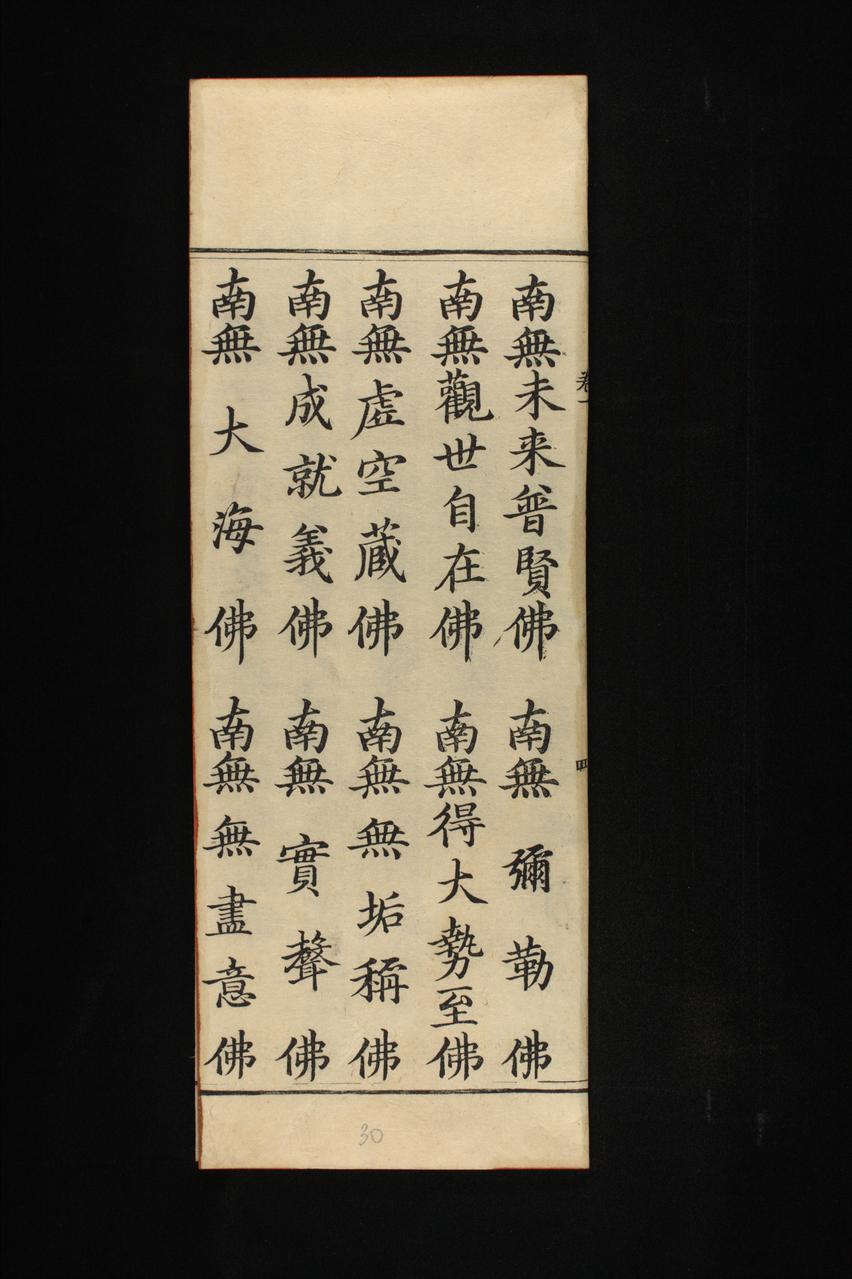 卷一
四
南無未来普賢佛 南無彌勒佛
南無觀世自在佛 南無得大勢至佛
南無虛空蔵佛 南無無垢稱佛
南無成就義佛 南無實聲佛
南無大海佛 南無無盡意佛
30